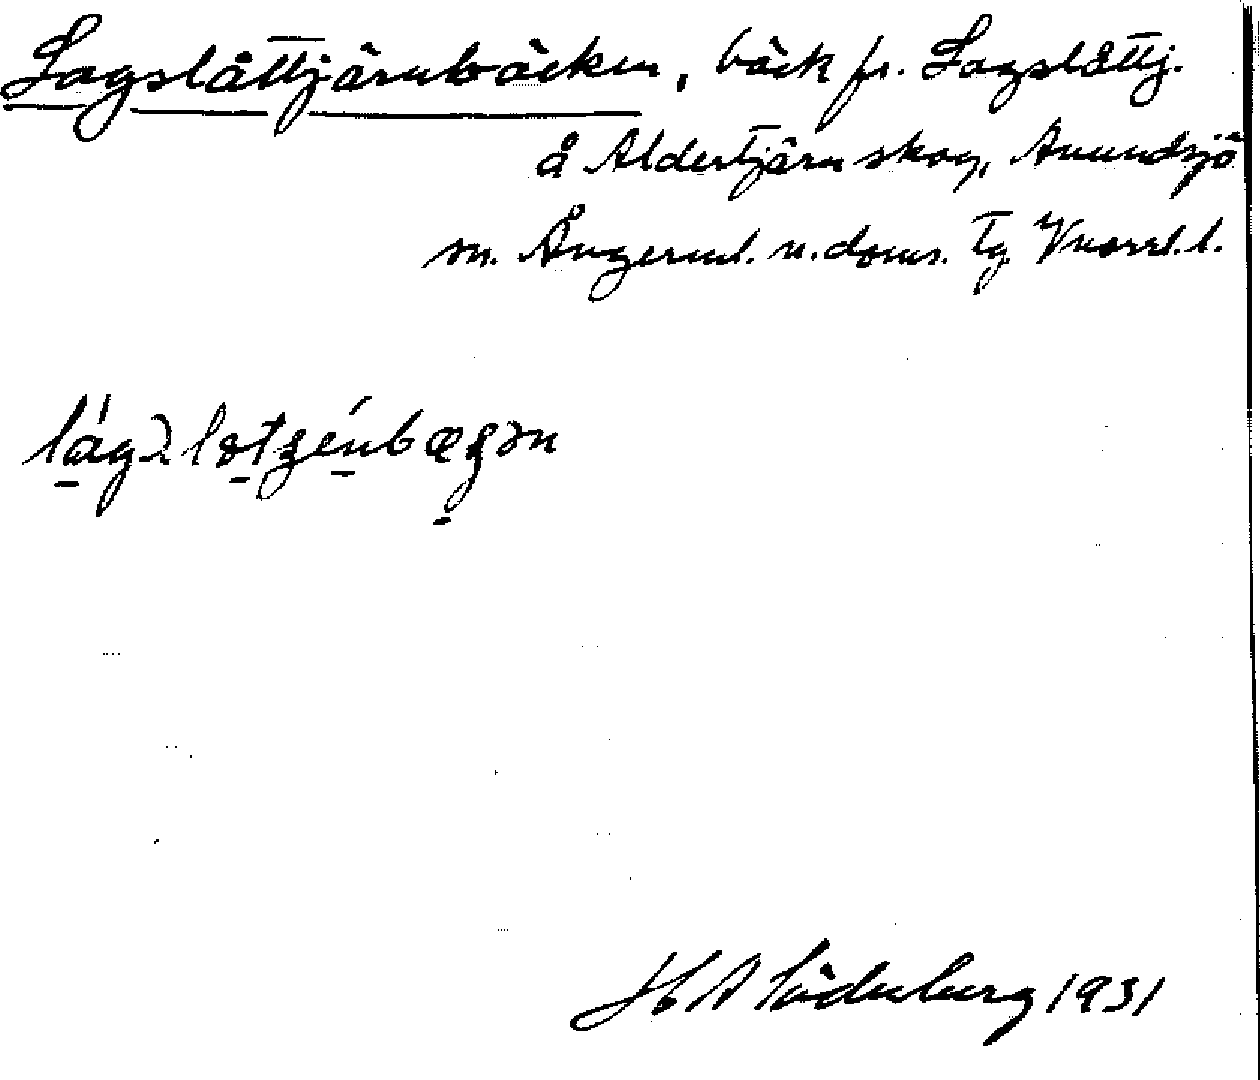 Lagslåttjärnbäcken, bäck fr. Lagslåttj.
å Aldertjärn skog, Anundsjö
sn. Ångerml. n. doms. Tg Vnorrl. l.
H A Söderberg 1931